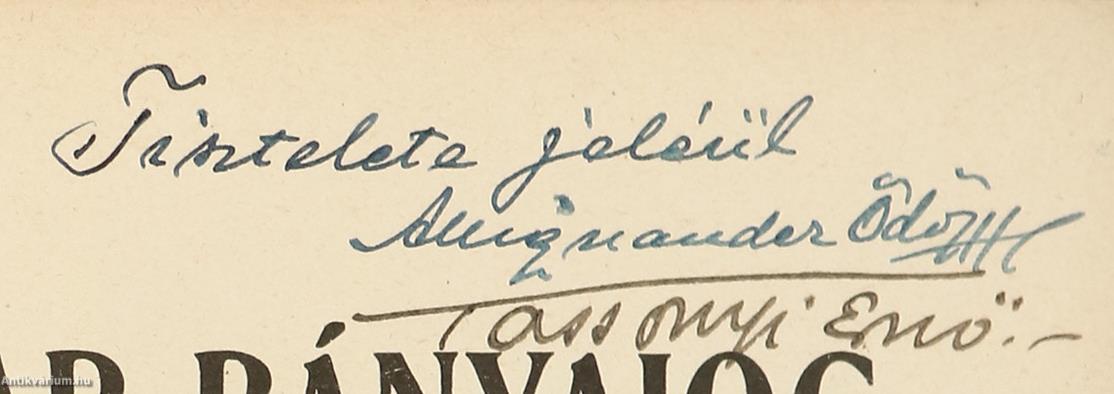 Tisztelete jeléül
Alliquander Ödön
Tassonyi Ernő.-
BÁNYAJOG
Antikvarium.hu